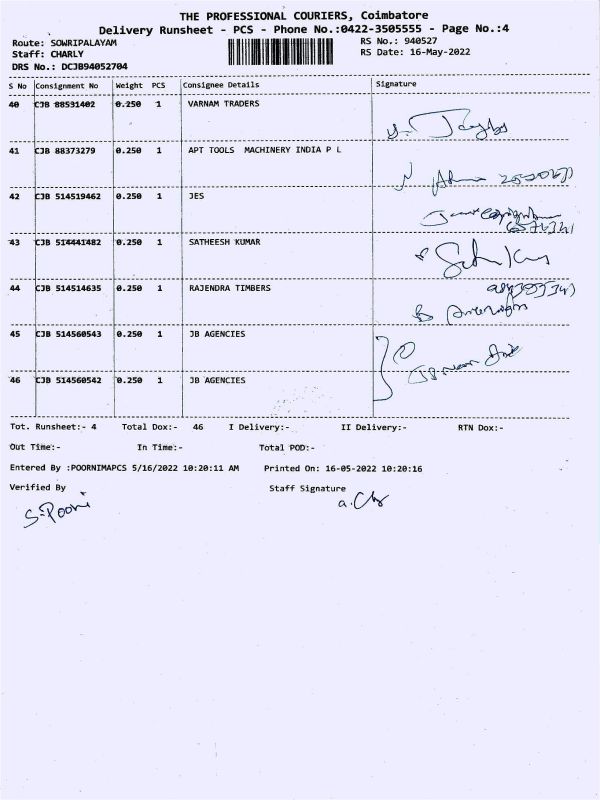 THE PROFESSIONAL COURIERS, Coimbatore
Delivery Runsheet - PCS - Phone No.:0422-3505555 - Page No.:4
Route: SOWRIPALAYAM
Staff: CHARLY
DRS No.: DCJB94052704
RS No.: 940527
RS Date: 16-May-2022
S No Consignment No Weight PCS Consignee Details Signature
40 CJB 88531402 0.250 1 VARNAM TRADERS
41 CJB 88373279 0.250 1 APT TOOLS MACHINERY INDIA P L
42 CJB 514519462 0.250 1 JES
43 CJB 514441482 0.250 1 SATHEESH KUMAR
44 CJB 514514635 0.250 1 RAJENDRA TIMBERS
45 CJB 514560543 0.250 1 JB AGENCIES
46 CJB 514560542 0.250 1 JB AGENCIES
Tot. Runsheet:- 4 Total Dox:- 46 I Delivery:- II Delivery:- RTN Dox:-
Out Time:- In Time:- Total POD:-
Entered By :POORNIMAPCS 5/16/2022 10:20:11 AM Printed On: 16-05-2022 10:20:16
Verified By Staff Signature
S.Poorni